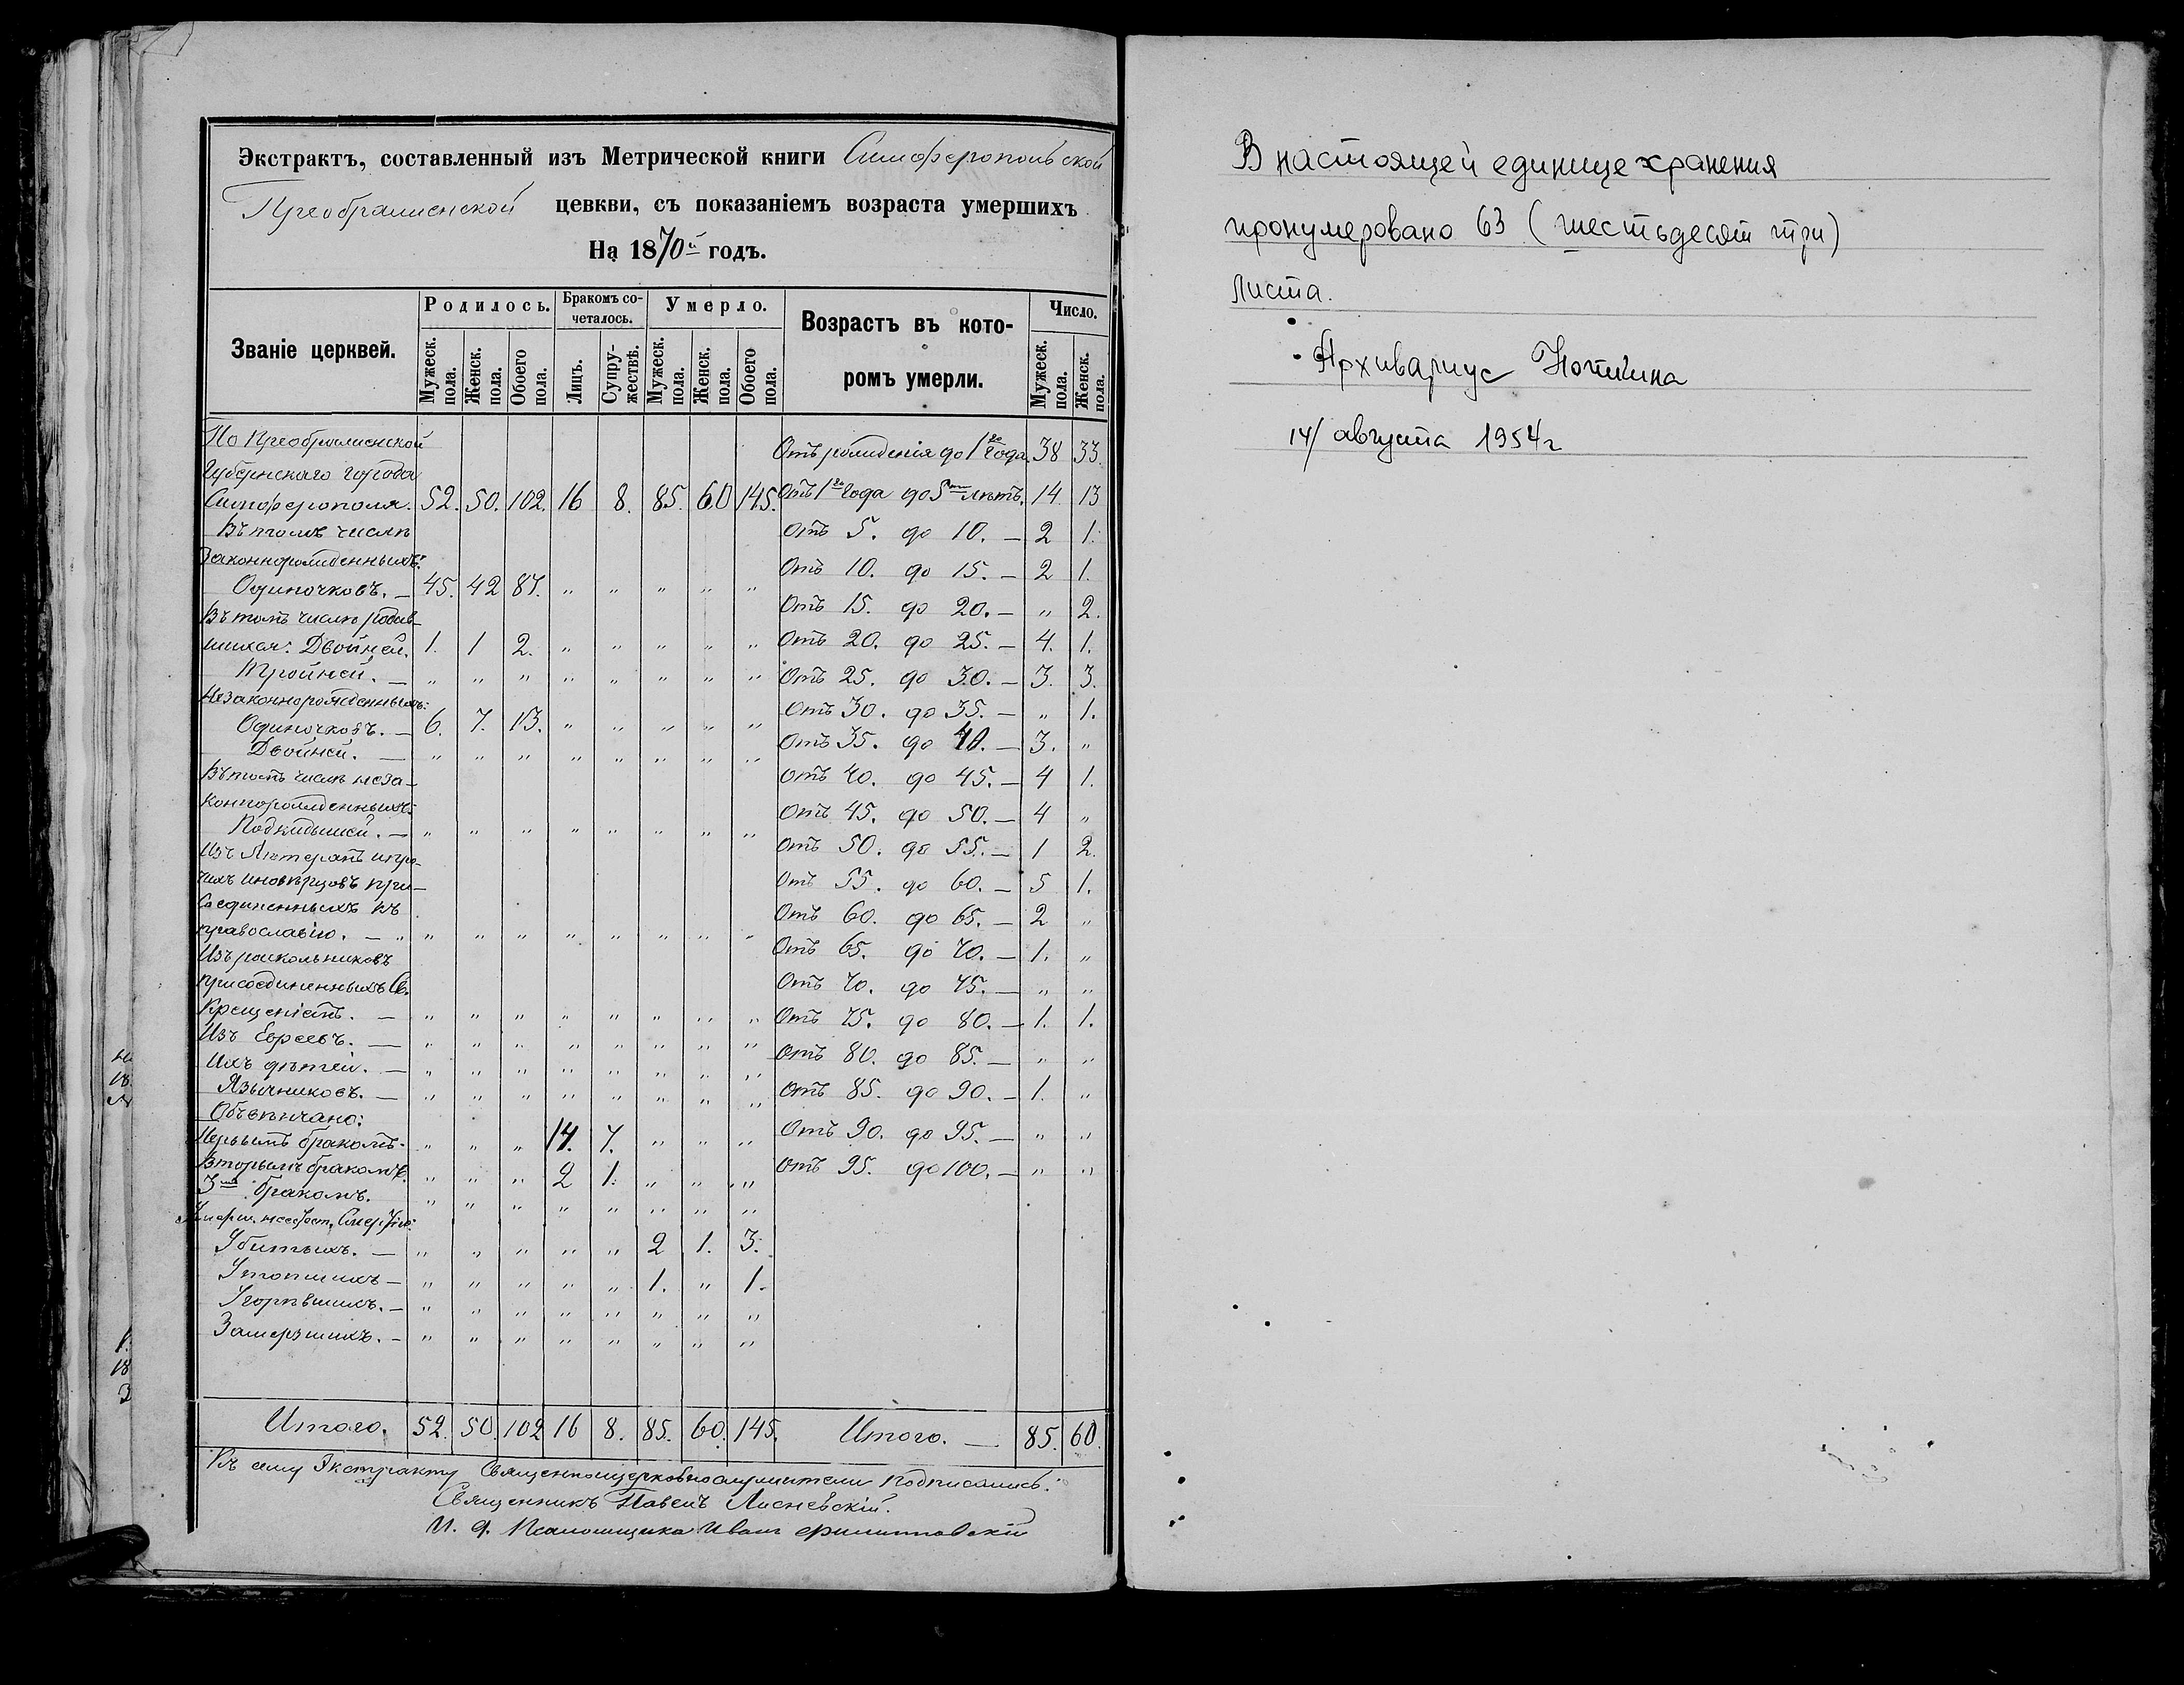 Экстрактъ, составленный изъ Метрической книги Симферопольской
Преображенской цевкви, съ показаніемъ возраста умершихъ
На 1870й годъ.
Званіе церквей. Родилось. Бракомъ сочеталось. Умерло. Возрастъ въ которомъ умерли. Число.
Мужеск. пола. Женск. пола. Обоего пола. Лицъ. Супружествъ. Мужеск. пола. Женск. пола. Обоего пола. Мужеск. пола. Женск. пола.
По Преображенской
Губернскаго города
Симферополя. 52. 50. 102. 16 8. 85. 60 145.
Въ томъ числѣ
Законнорожденныхъ:
Одиночковъ. — 45. 42 87. „ „ „ „ „
Въ томъ числѣ родив-
шихся: Двойней. 1. 1 2. „ „ „ „ „
Тройней. — „ „ „ „ „ „ „ „
Незаконнорожденныхъ:
Одиночковъ. — 6. 7. 13. „ „ „ „ „
Двойней. — „ „ „ „ „ „ „ „
Въ томъ числѣ неза-
коннорожденныхъ:
Подкидышей. — „ „ „ „ „ „ „ „
Изъ Лютеранъ и про-
чихъ иновѣрцовъ при-
соединенныхъ къ
православію. — „ „ „ „ „ „ „ „
Изъ раскольниковъ
присоединенныхъ Св.
Крещеніемъ. — „ „ „ „ „ „ „ „
Изъ Евреевъ. — „ „ „ „ „ „ „ „
Ихъ дѣтей. — „ „ „ „ „ „ „ „
Язычниковъ. — „ „ „ „ „ „ „ „
Обвѣнчано:
Первымъ бракомъ. „ „ „ 14. 7. „ „ „
Вторымъ бракомъ. „ „ „ 2 1. „ „ „
3мъ бракомъ. „ „ „ „ „ „ „ „
Убитыхъ. — „ „ „ „ „ 2 1. 3.
Утопшихъ — „ „ „ „ „ 1. „ 1.
Угорѣвшихъ. — „ „ „ „ „ „ „ „
Замерзшихъ. — „ „ „ „ „ „ „ „
Итого. 52. 50. 102 16 8. 85. 60. 145.
Отъ рожденія до 1го года. 38 33.
Отъ 1го года до 5ти лѣтъ. 14. 13
Отъ 5. до 10. — 2 1.
Отъ 10. до 15. — 2 1.
Отъ 15. до 20. — „ 2.
Отъ 20. до 25. — 4. 1.
Отъ 25. до 30. — 3. 3.
Отъ 30. до 35. — „ 1.
Отъ 35. до 40. — 3. „
Отъ 40. до 45. — 4 1.
Отъ 45. до 50. — 4 „
Отъ 50. до 55. — 1 2.
Отъ 55. до 60. — 5 1.
Отъ 60. до 65. — 2 „
Отъ 65. до 70. — 1. „
Отъ 70. до 75. — „ „
Отъ 75. до 80. — 1. 1.
Отъ 80. до 85. — „ „
Отъ 85. до 90. — 1. „
Отъ 90. до 95. — „ „
Отъ 95. до 100. — „ „
Итого. — 85. 60.
Къ сему Экстракту Священноцерковнослужители подписались:
Священникъ Павелъ Лисневскій.
И. д. Псаломщика Иванъ Филипповскій
В настоящей единице хранения
пронумеровано 63 (шестьдесят три)
листа.
Архивариус
14/ августа 1954г